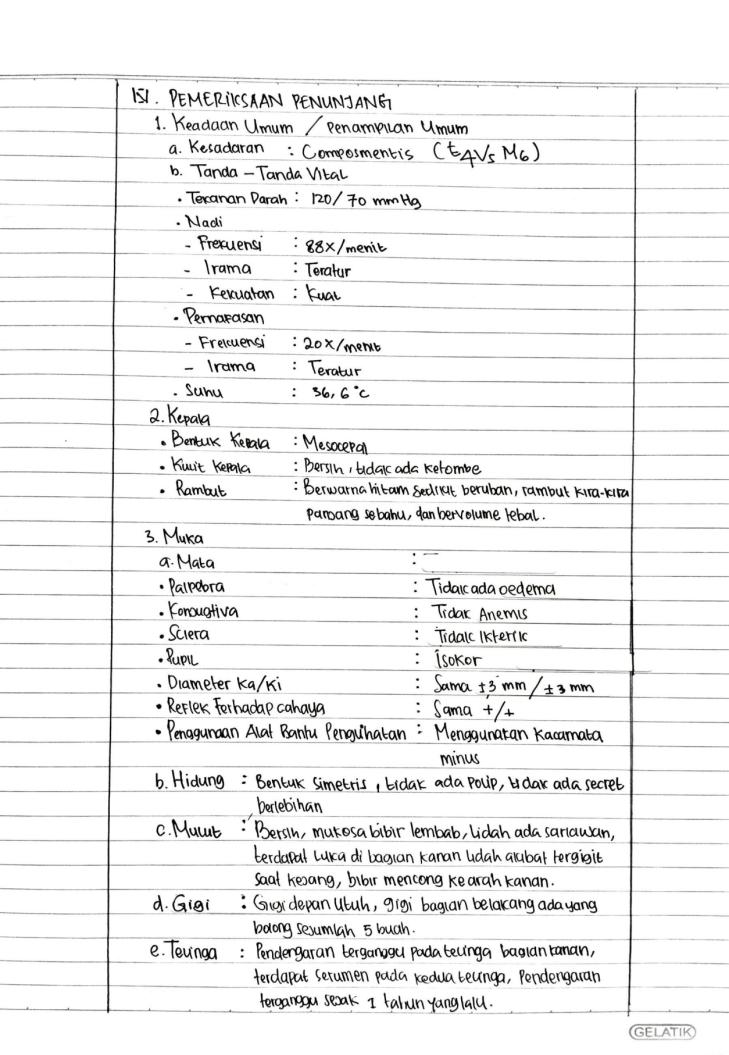 ISI. PEMERIKSAAN PENUNJANG
1. Keadaan Umum / Penampilan Umum
a. Kesadaran : Composmentis (E4V5 M6)
b. Tanda - Tanda Vital
• Tekanan Darah : 120/70 mmHg
• Nadi
- Frekuensi : 88x/menit
- Irama : Teratur
- Kekuatan : Kuat
• Pernafasan
- Frekuensi : 20x/menit
- Irama : Teratur
• Suhu : 36,6°C
2. Kepala
• Bentuk Kepala : Mesocepal
• Kulit Kepala : Bersih, tidak ada ketombe
• Rambut : Berwarna hitam sedikit beruban, rambut kira-kira
panjang sebahu, dan bervolume tebal.
3. Muka
a. Mata :
• Palpebra : Tidak ada oedema
• Konjugtiva : Tidak Anemis
• Sclera : Tidak Ikterik
• Pupil : Isokor
• Diameter Ka/Ki : Sama ±3 mm / ±3 mm
• Reflek Terhadap cahaya : Sama +/+
• Penggunaan Alat Bantu Penglihatan : Menggunakan Kacamata
minus
b. Hidung : Bentuk Simetris, tidak ada polip, tidak ada secret
berlebihan
c. Mulut : Bersih, mukosa bibir lembab, lidah ada sariawan,
terdapat luka di bagian kanan lidah akibat tergigit
saat kejang, bibir mencong kearah kanan.
d. Gigi : Gigi depan Utuh, gigi bagian belakang ada yang
bolong sejumlah 5 buah.
e. Telinga : Pendengaran terganggu pada telinga bagian kanan,
terdapat serumen pada kedua telinga, Pendengaran
terganggu sejak 1 tahun yang lalu.
GELATIK